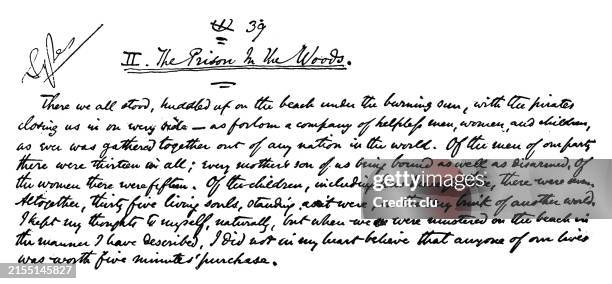 39
II. The Prison In the Woods.
There we all stood, huddled up on the beach under the burning sun, with the pirates
closing us in on every side — as forlorn a company of helpless men, women, and children,
as ever was gathered together out of any nation in the world. Of the men of our party
there were thirteen in all; every mother's son of us being bound as well as disarmed. Of
the women there were fifteen. Of the children, including, there were
Altogether, thirty five living souls, standing as it were on the very brink of another world.
I kept my thoughts to myself, naturally, but when we were mustered on the beach in
the manner I have described, I did not in my heart believe that anyone of our lives
was worth five minutes' purchase.
gettyimages
Credit: clu
2155145827